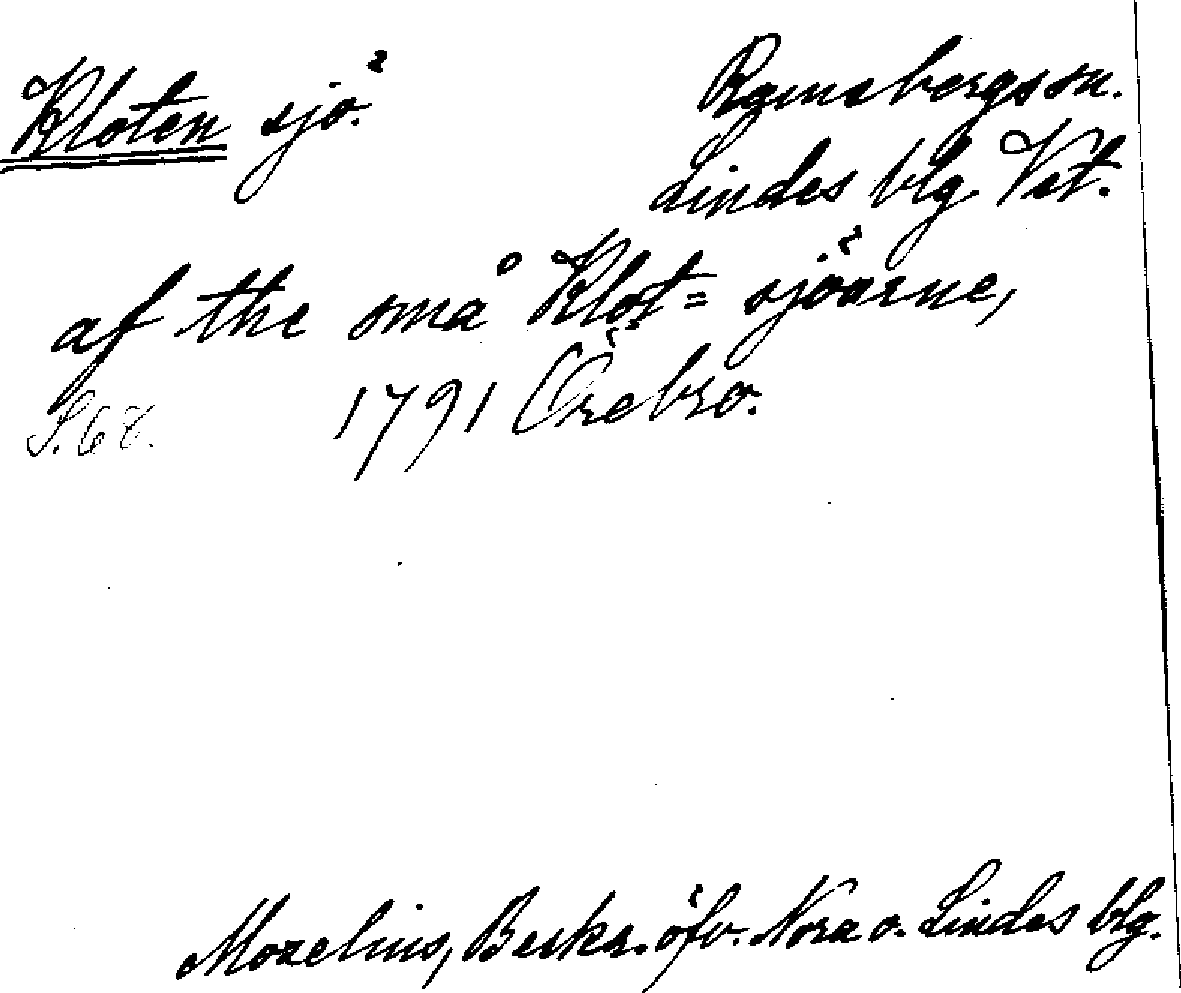 Kloten sjö.
Ramsbergs sn.
Lindes blg. Vst.
af the små Klot= sjöarne,
S. 68. 1791 Örebro.
Morelius, Beskr. öfv. Nora o. Lindes blg.